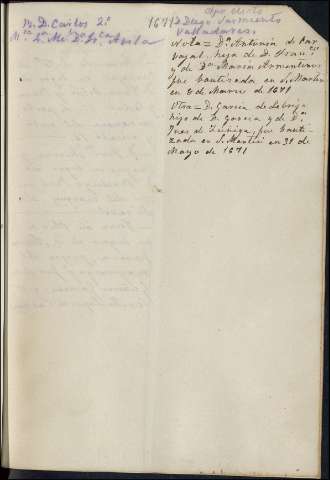 R. D. Carlos 2º
Mª Lª Mª Dª Frca Avila
1671
Diego Sarmiento
Valladares
Nota = Dª Antonia de Car
vajal, hija de D. Franco
y de Dª Maria Armenteros
fue bautizada en S. Martin
en 8 de Marzo de 1671
Otra = D. Garcia de Lebrija
hijo de D. Garcia y de Dª
Ines de Zuñiga, fue bauti-
zado en S. Martin en 31 de
Mayo de 1671